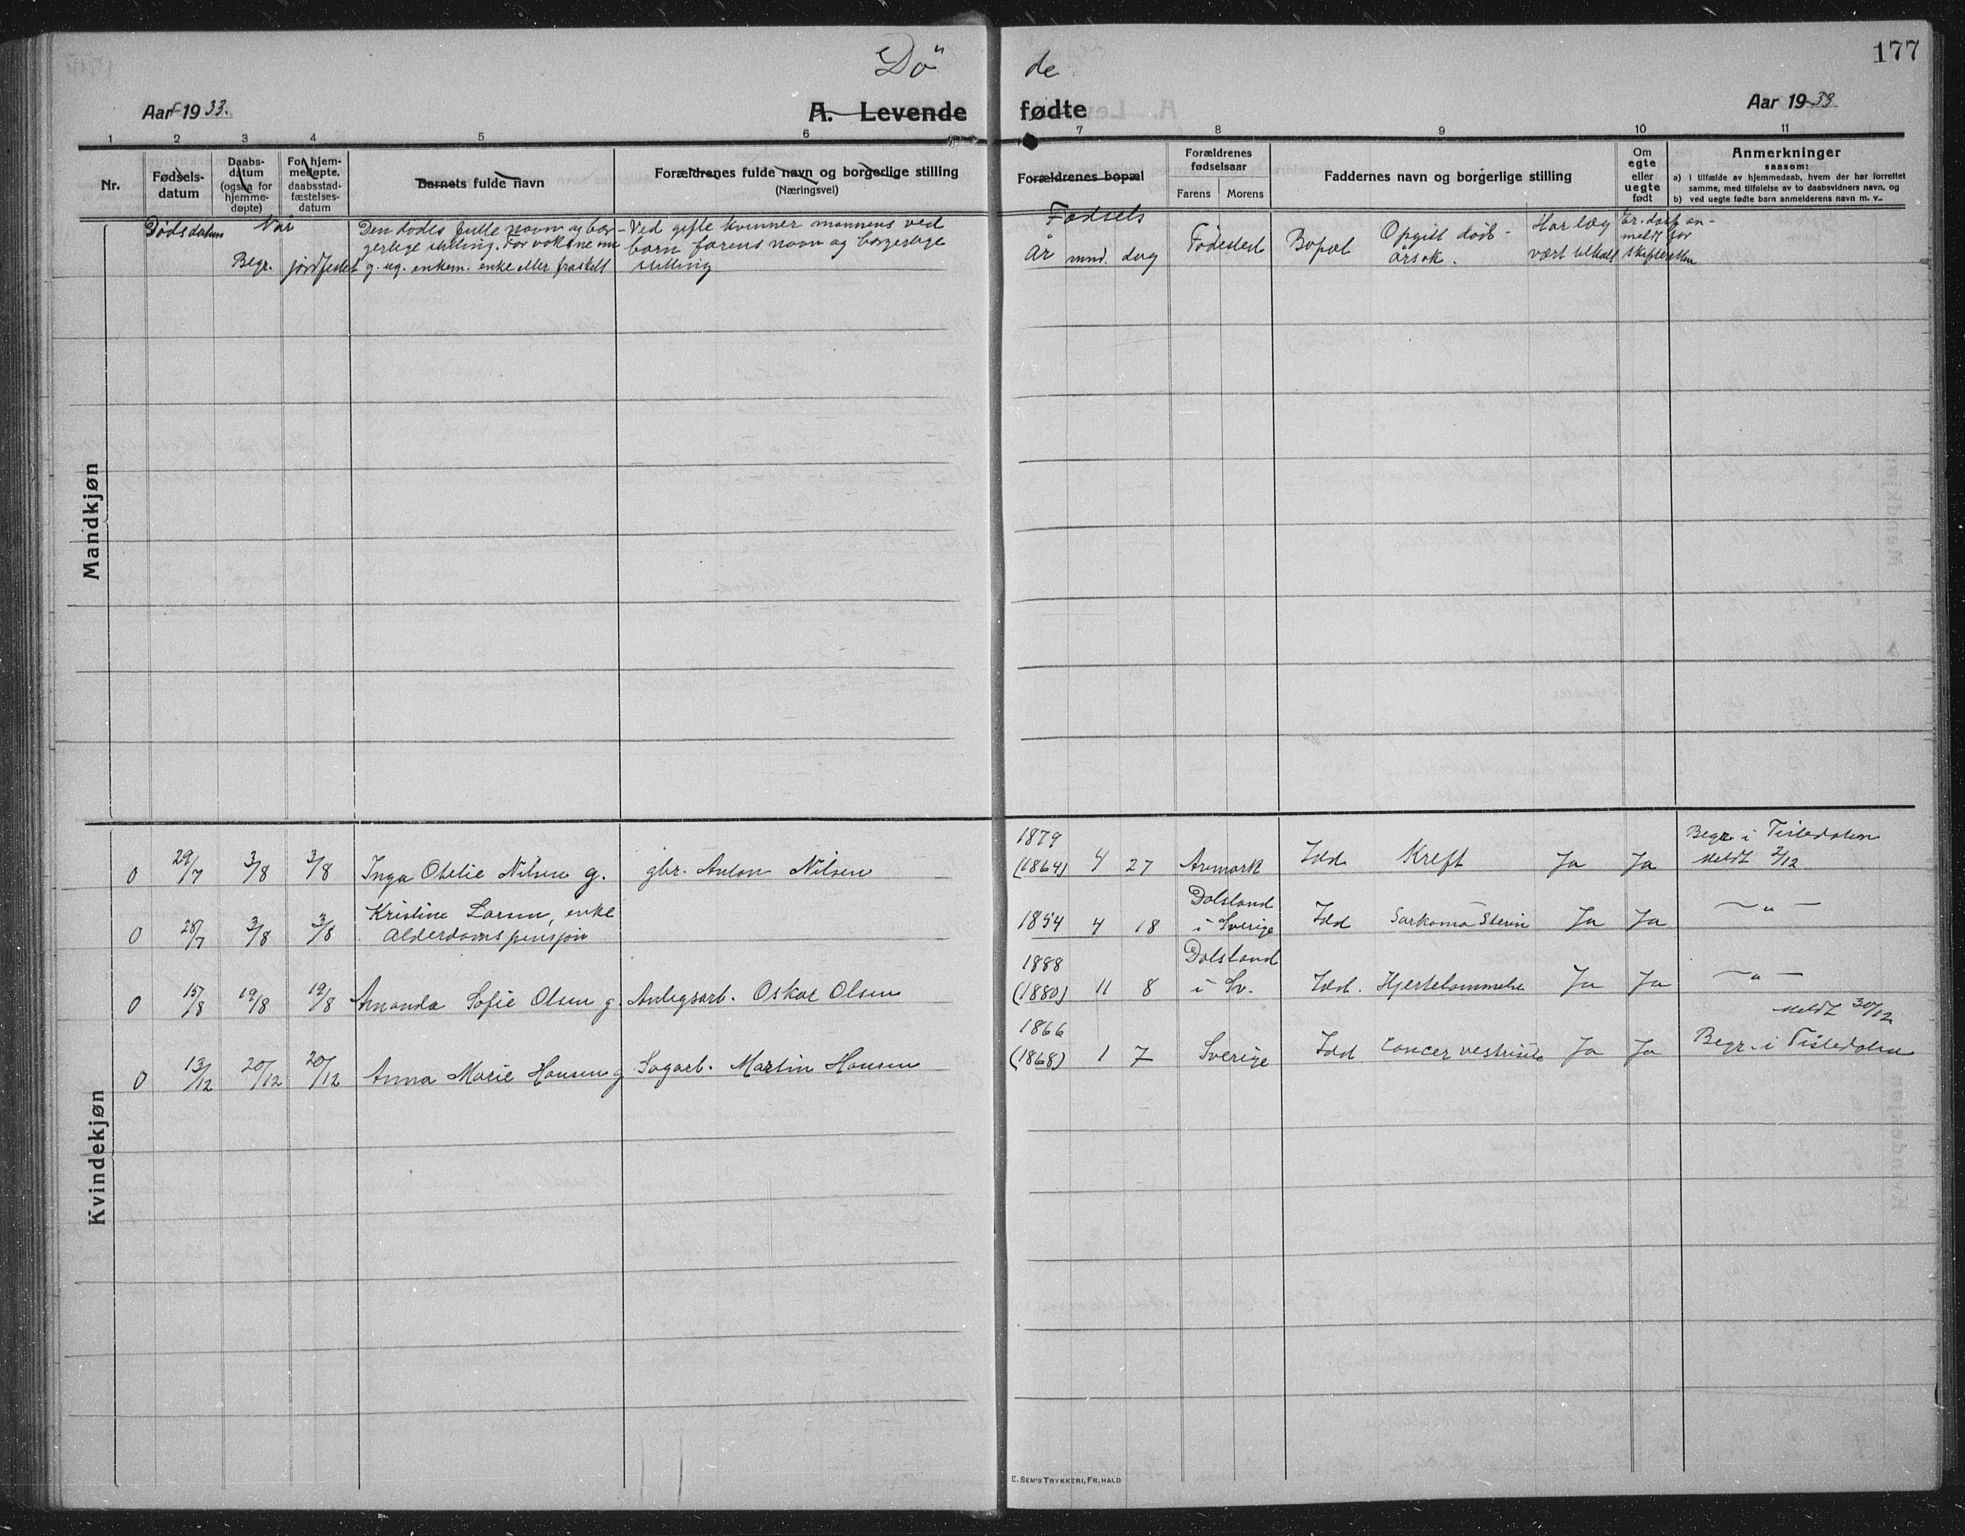 Dö"
de
177
Aar 1933.
A. Levende
fødte
Aar 1933
1 2 3 4 5 6 7 8 9 10 11
Nr.
Fødsels-
datum
Daabs-
datum
(ogsaa for
hjemme-
døpte)
For hjem-
medøpte,
daabsstad-
fæstelses-
datum
Barnets fulde navn
Forældrenes fulde navn og borgerlige stilling
(Næringsvei)
Forældrenes bopæl
Forældrenes
fødselsaar
Farens Morens
Faddernes navn og borgerlige stilling
Om
egte
eller
uegte
født
Anmerkninger
saasom:
a) i tilfælde av hjemmedaab, hvem der har forrettet
samme, med tilføielse av to daabsvidners navn, og
b) ved uegte fødte barn anmelderens navn m. v..
Dødsdatum
Når
Begr. jordfestet
Den dødes fulle navn og bor-
gerlige stilling. For voksne om
g. ug. enkem. enke eller fraskilt
Ved gifte kvinner mannens ved
barn farens navn og borgerlige
stilling
Fødsels
år mnd. dag
Fødested
Bopæl
Opgitt døds-
årsak.
Har læg
vært tilkalt
Er dødsf. an-
meldt for
skifteretten
Mandkjøn
Kvindekjøn
0 29/7 3/8 3/8 Inga Otelie Nilsen g. gbr. Anton Nilsen 1879 (1864) 4 27 Aremark Idd Kreft Ja Ja Begr. i Tistedalen
Meldt 2/12
0 28/7 3/8 3/8 Kristine Larsen, enke
Alderdomspensjon 1854 4 18 Dalsland
i Sverige Idd Sarkoma Ja Ja — " —
0 15/8 19/8 19/8 Amanda Sofie Olsen g. Anlegsarb. Oskar Olsen 1888 (1880) 11 8 Dalsland
i Sv. Idd. Hjertelammelse Ja Ja — " —
Meldt 30/12
0 13/12 20/12 20/12 Anna Marie Hansen g Sagarb. Martin Hansen 1866 (1868) 1 7 Sverige Idd Cancer Ja Ja Begr. i Tistedalen
E. Sem's Trykkeri, Fr.hald